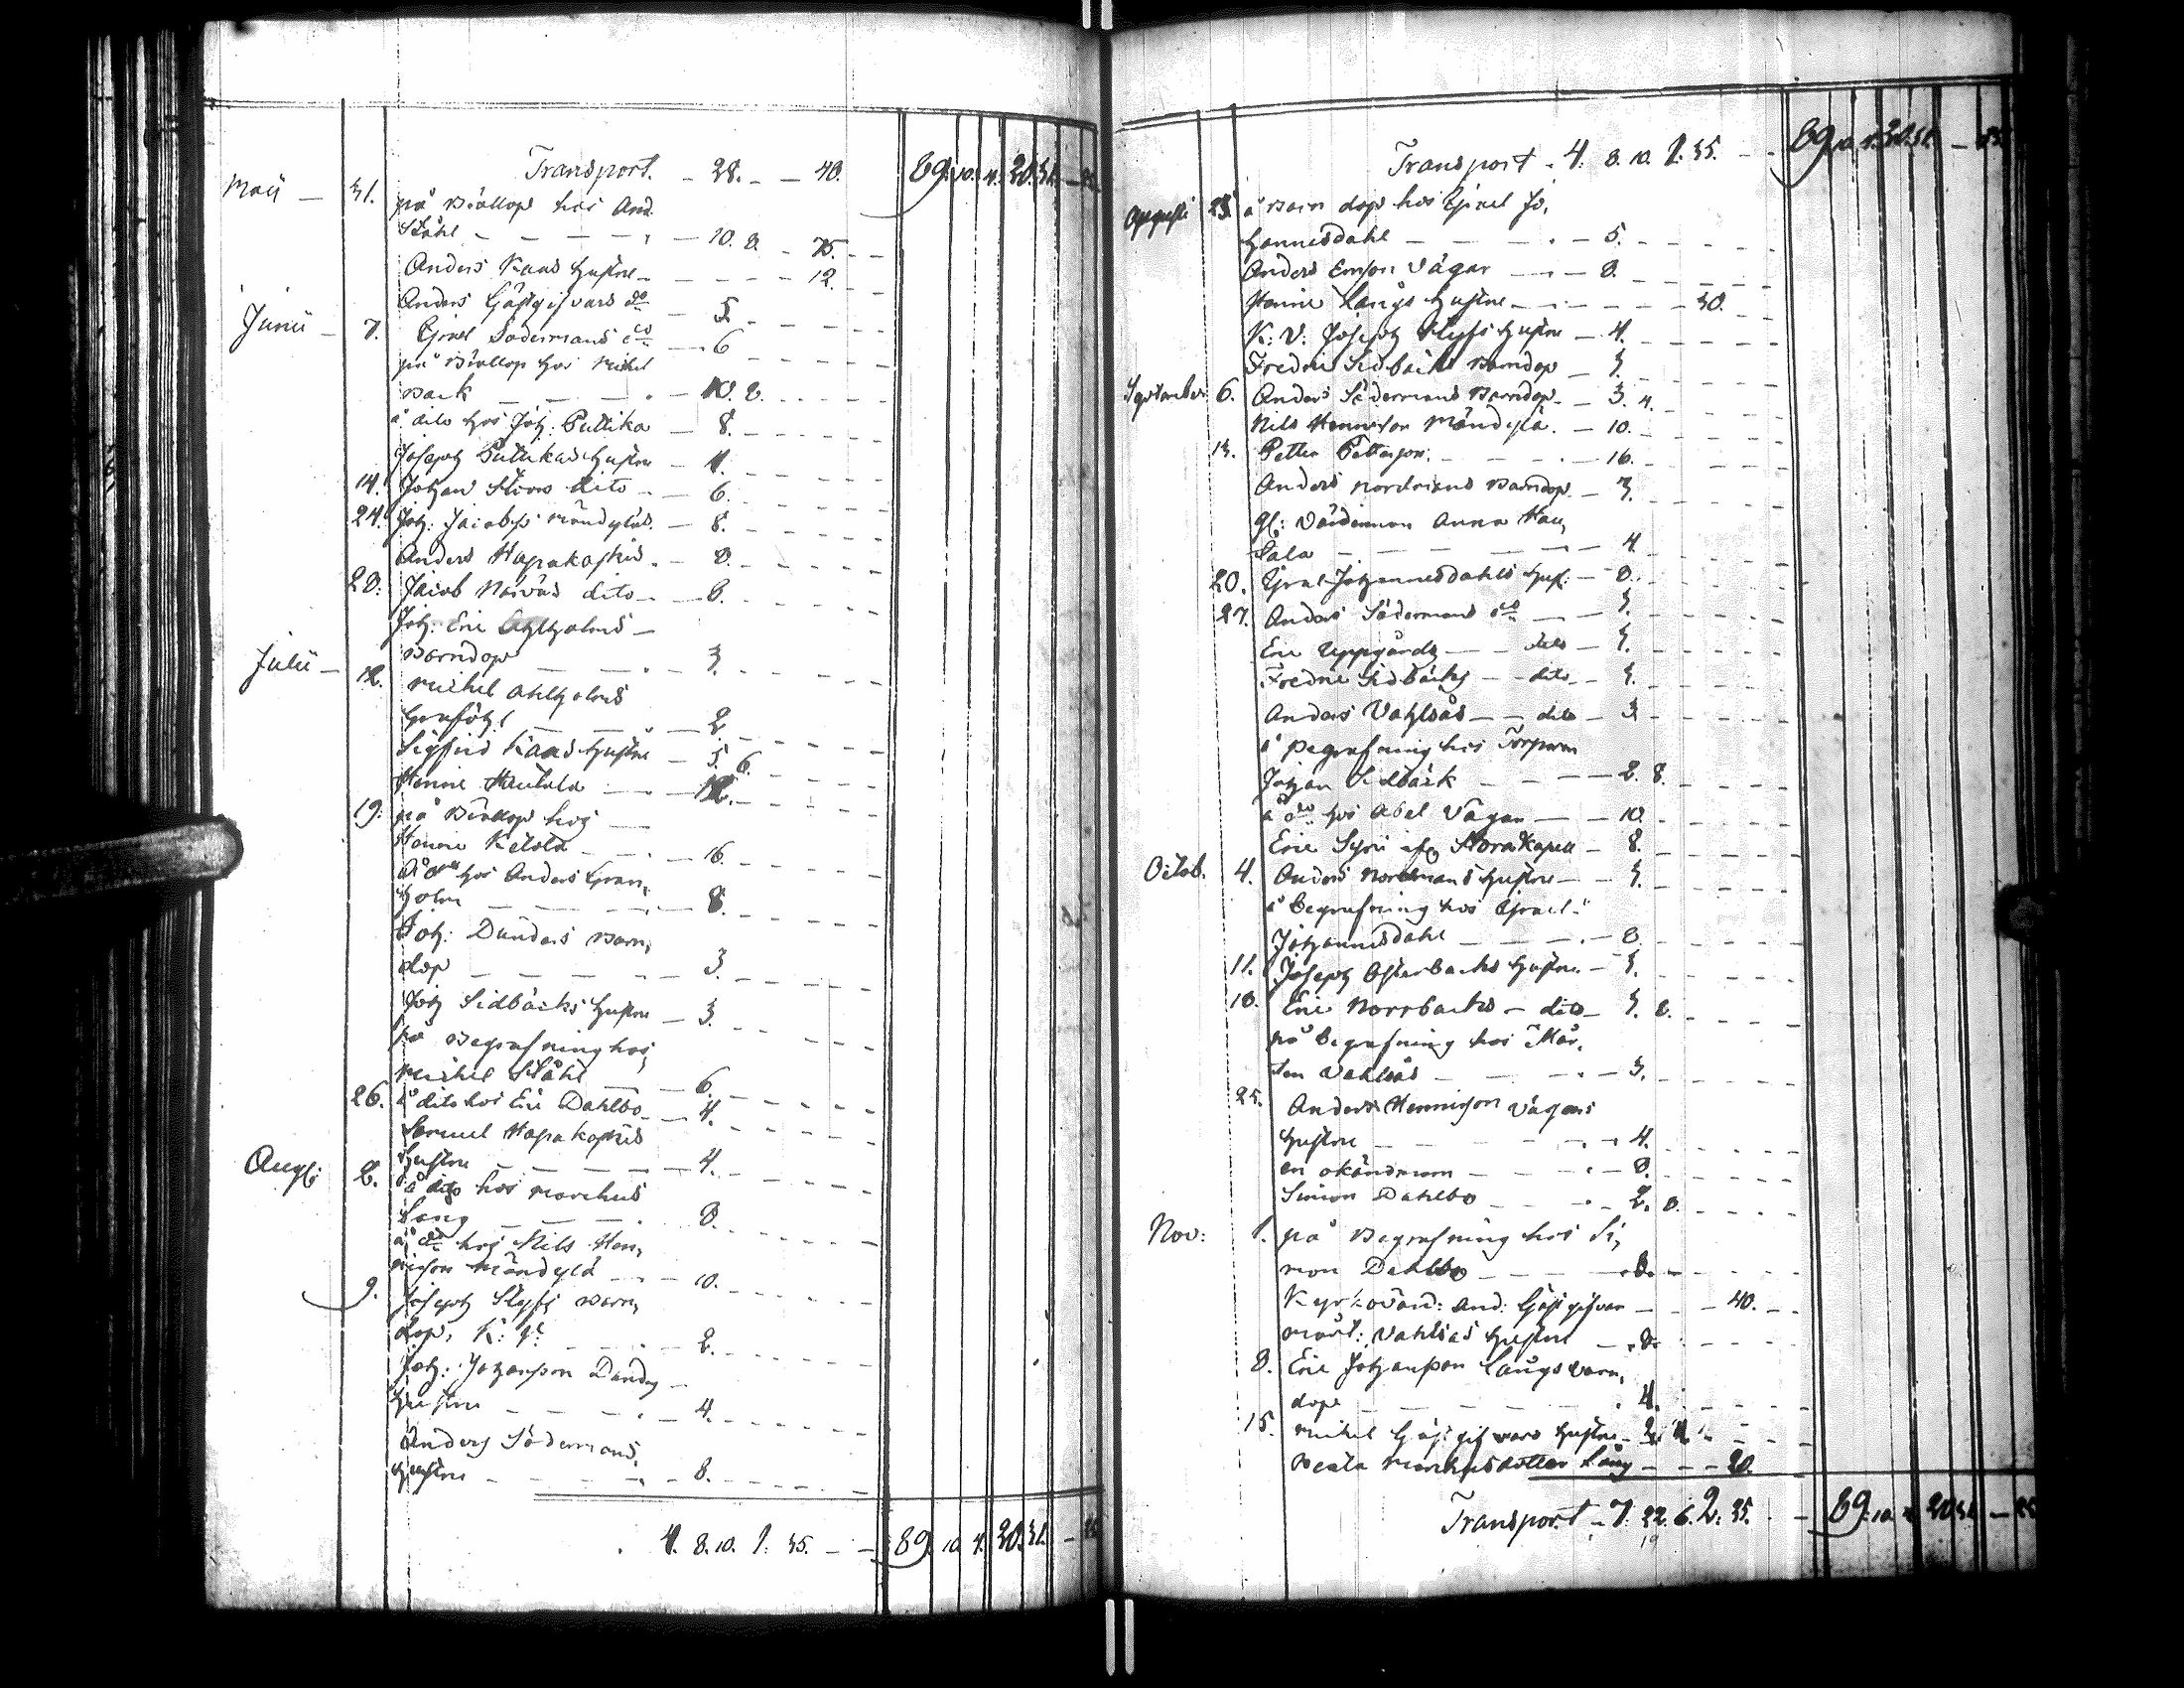 Transport. - 28. - - 40. 69. 10. 4. 20. 31. -
Maii - 31. på Bröllop hos And.
Ståhl - - - - 10. 8. - 75. - -
Anders Kaas hustru - - - - - 12.
Anders Gästgifvars do - 5. - - - -
Junii - 7. Israel Södermans do - 6 - - - -
på Bröllop hos Michel
Back - - - - 10. 8. - - - -
å dito hos Joh: Puttika - 8. - - - -
Joseph Puttikas hustru - 4. - - - -
14. Johan Stores dito - - 6. - - - -
24. Joh: Jacobss Mändyläs. - 8. - - - -
Anders Hapakoskis. - 8. - - - -
28. Jacob Neivás dito - - 6. - - - -
Joh: Eric Ahlholms -
Barndop - - - 3. - - - -
Julii - 12. Michel Ahlholms
- - - 2. - - - -
Sigfrid Kaas hustru - 5. 6. - - - -
Hannie Hautala - - 12. - - - -
19. på Bröllop hos -
Hannie Ketola - - - 16. - - - -
å do hos Anders Gran,
holm - - - - 8. - - - -
Joh: Dunders Barn,
dop - - - - 3. - - - -
Joh Sidbäcks hustru - 3. - - - -
på Begrafning hos
Michel Ståhl - - 6. - - - -
26. å dito hos Eric Dahlbo - 4. - - - -
Samuel Hapakoskis
hustru - - - - 4. - - - -
Augsti 2. å dito hos Marchus
Lång - - - - 8. - - - -
å do hos Nils Hen,
ricson Mändylä - - 10. - - - -
9. Joseph Slyfs Barn,
dop, K: - - - 2. - - - -
Joh: Johansson Dunders -
hustru - - - - 4. - - - -
Anders Södermans,
hustru - - - - 8. - - - -
4. 8. 10. 1. 35. - - 69. 10. 4. 20. 31. -
Transport - 4. 8. 10. 1. 35. - - 69. 10. 4. 20. 31. -
Augusti 23. å Barn dop hos Israel Jo,
hannesdahl - - - - 5. - - - -
Anders Ersson Vägar - - 8. - - - -
Hannie Långs hustru - - - - - 30. -
K: V: Joseph Slyfs hustru - 4. - - - -
Fredric Sidbäcks Barndop - 3. - - - -
September 6. Anders Södermans Barndop. - 3. 4. - - - -
Nils Henricson Mändylä. - 10. - - - -
13. Petter Petterson. - - - 16. - - - -
Anders Nordmans Barndop. - 3. - - - -
gl: Värdinnan Anna Hau,
tala - - - - - 4. - - - -
20. Israel Johannesdahls hust. - 8. - - - -
27. Anders Södermans do - - 3. - - - -
Eric Uppgårds - - dito - 3. - - - -
Fredric Sidbäcks - dito - 3. - - - -
Anders Vahlsås - - dito - 3. - - - -
å Begrafning hos Torparen
Johan Sidbäck - - - 2. 8. - - - -
å do hos Abel Vägar - - 10. - - - -
Eric Syri Stora Kapell - 8. - - - -
Octob. 4. Anders Nordmans hustru - - 3. - - - -
å Begrafning hos Israel
Johannesdahl - - - 8. - - - -
11. Joseph Österbacks hustru. - 3. - - - -
18. Eric Norrbacks - dito - 3. 8. - - - -
på Begrafning hos Mår,
ten Vahlsås - - - - 3. - - - -
25. Anders Henricson Vägars
hustru - - - - 4. - - - -
en okändman - - - 8. - - - -
Simon Dahlbo - - - 2. 8. - - - -
Nov: 1. på Begrafning hos Si,
mon Dahlbo - - - 8. - - - -
Kyrkovärd: And: Gästgifvar - - - 40. -
Mårt: Vahlsås hustru - 8. - - - -
8. Eric Johansson Långs Barn,
dop - - - - - 4. - - - -
15. Michel Gästgifvars hustru - 2. - - - -
Beata Marchusdotter Lång - - - 20.
Transport - 7. 22. 6. 2. 35. - - 69. 10. 4. 20. 31. -
19